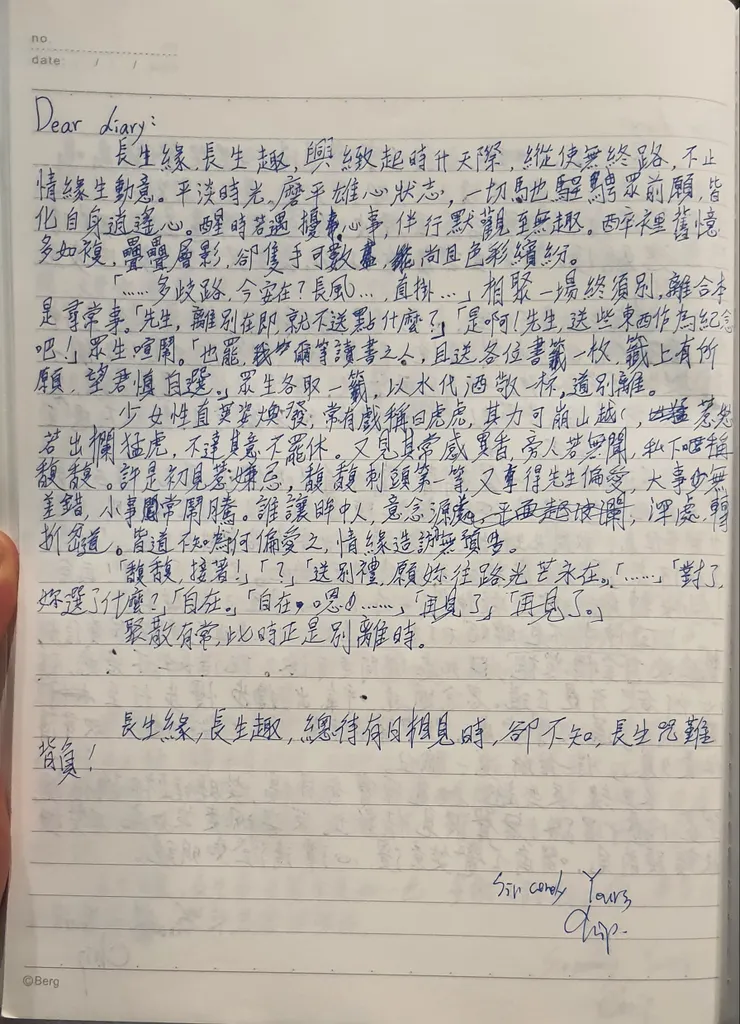 no
date / /
Dear diary:
長生緣,長生趣,興緻起時升天際,縱使無終路,不止
情緣生動意。平淡時光,磨平雄心狀志,一切馳騁眾前願,皆
化自身逍遙心。醒時若遇擾心事,伴行默觀至無趣。醉裡舊憶
多如複,疊疊層影,卻隻手可數,尚且色彩繽紛。
「……多歧路,今安在?長風…,直掛…」相聚一場終須別,離合本
是尋常事。「先生,離別在即,就不送點什麼?」「是啊!先生,送些東西作為紀念
吧!」眾生喧鬧。「也罷,爾等讀書之人,且送各位書籤一枚,籤上有所
願,望君慎自選。」眾生各取一籤,以水代酒敬一杯,道別離。
少女性直英姿煥發,常有戲稱曰虎虎,其力可崩山越,惹
若出欄猛虎,不達其意不罷休。又見其常感異香,旁人若無聞,私下稱
馥馥。許是初見惹嫌忌,馥馥刺頭第一等,又享得先生偏愛,大事無
差錯,小事常鬧騰。誰讓眸中人,意念源處,深處,轉
折。皆道不知為何偏愛之,情緣造訪無預告。
「馥馥,接著!」「?」「送別禮,願妳往路光芒永在。」「……」「對了,
妳選了什麼?」「自在。」「自在,嗯……」「再見了」「再見了。」
聚散有常,此時正是別離時。
長生緣,長生趣,總待有日相見時,卻不知,長生咒難
背負!
Sincerely Yours
©Berg